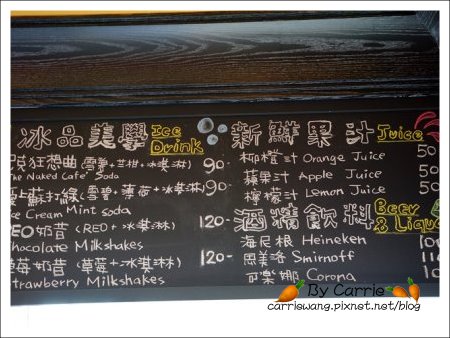 冰品美學 Ice Drink
狂想曲(雪碧+芒柑+冰淇淋) 90-
The Naked Cafe' Soda
蘇打綠(雪碧+薄荷+冰淇淋) 90-
Ice Cream Mint Soda
REO奶昔(REO+冰淇淋) 120-
Chocolate Milkshakes
草莓奶昔(草莓+冰淇淋) 120-
Strawberry Milkshakes
新鮮果汁 Juice
柳橙汁 Orange Juice 50
蘋果汁 Apple Juice 50
檸檬汁 Lemon Juice 50
酒精飲料 Beer & Liqu
海尼根 Heineken
思美洛 Smirnoff
可樂娜 Corona
By Carrie
carriewang.pixnet.net/blog